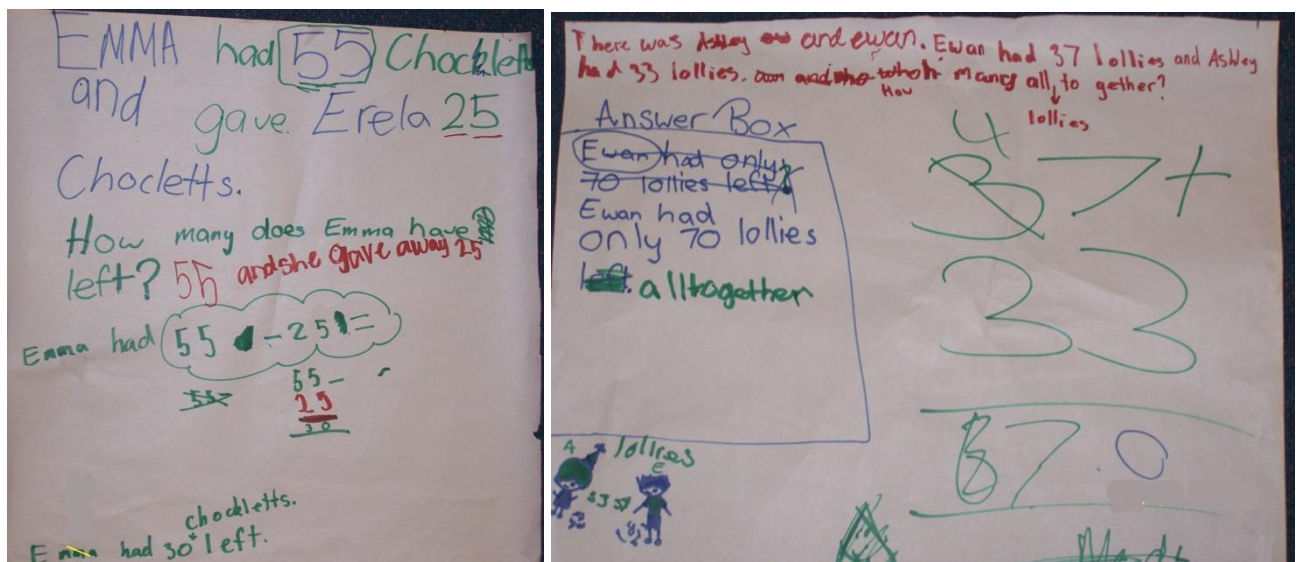 EMMA had 55 Chocklett
and gave Erela 25
Chocletts.
How many does Emma have
left? 55 and she gave away 25
Emma had 55 - 25 =
55 -
25
30
chockletts.
Emma had 30 left.
There was Ashley and ewan. Ewan had 37 lollies and Ashley
had 33 lollies. How many all to gether?
lollies
Answer Box
Ewan had only
70 lollies left
Ewan had
only 70 lollies
left. alltogether
4
37+
33
70
A lollies
E
33 37